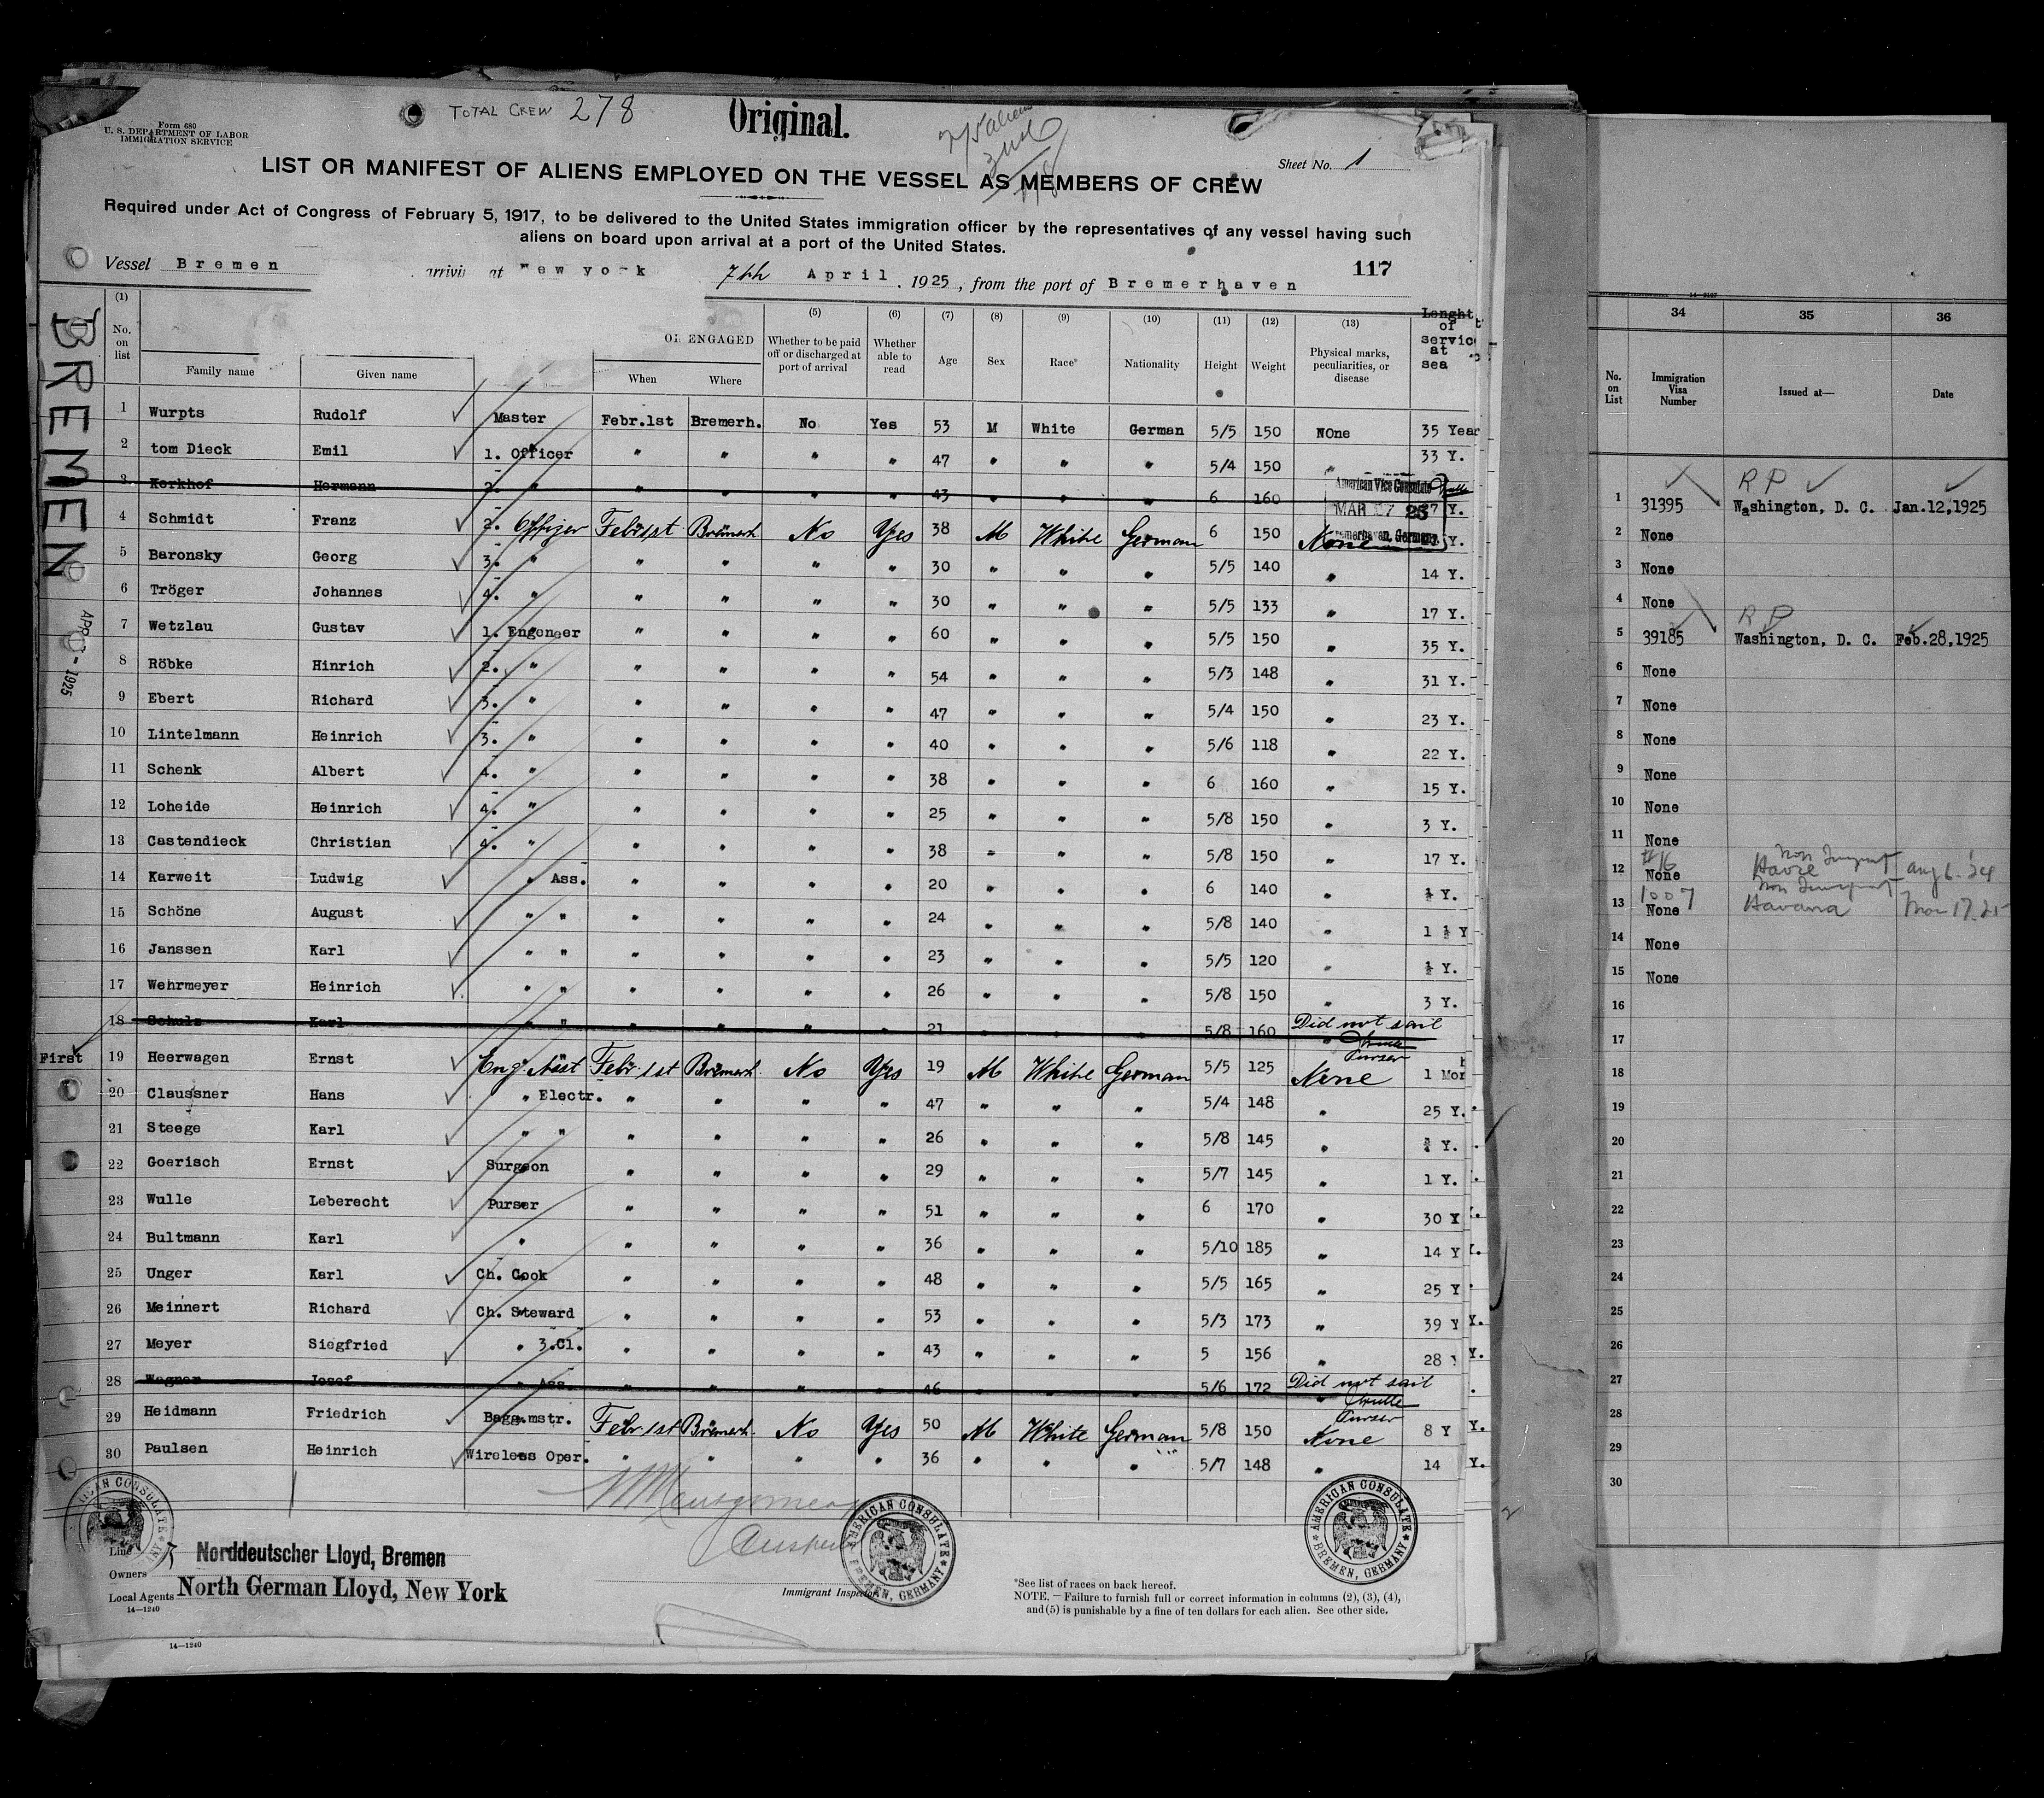 TOTAL CREW 278
Original.
Form 680
U. S. DEPARTMENT OF LABOR
IMMIGRATION SERVICE
Sheet No. 1
LIST OR MANIFEST OF ALIENS EMPLOYED ON THE VESSEL AS MEMBERS OF CREW
Required under Act of Congress of February 5, 1917, to be delivered to the United States immigration officer by the representatives of any vessel having such
aliens on board upon arrival at a port of the United States.
117
Vessel Bremen at New york 7th April, 1925, from the port of Bremerhaven
BREMEN
(1) (5) (6) (7) (8) (9) (10) (11) (12) (13)
No. on list Family name Given name ENGAGED When Where Whether to be paid off or discharged at port of arrival Whether able to read Age Sex Race* Nationality Height Weight Physical marks, peculiarities, or disease Lenght of service at sea
1 Wurpts Rudolf Master Febr.1st Bremerh. No Yes 53 M White German 5/5 150 NOne 35 Year
2 tom Dieck Emil 1. Officer " " " " 47 " " " 5/4 150 " 33 Y.
3 Korkhof Hermann 2. " " " " " 43 " " " 6 160 7 Y.
American Vice Consulate
MAR 27 25
Bremerhaven, Germany
4 Schmidt Franz 2. Offizer Febr 1st Bremerh No Yes 38 M White German 6 150 None Y.
5 Baronsky Georg 3. " " " " " 30 " " " 5/5 140 " 14 Y.
6 Tröger Johannes 4. " " " " " 30 " " " 5/5 133 " 17 Y.
7 Wetzlau Gustav 1. Engeneer " " " " 60 " " " 5/5 150 " 35 Y.
8 Röbke Hinrich 2. " " " " " 54 " " " 5/3 148 " 31 Y.
9 Ebert Richard 3. " " " " " 47 " " " 5/4 150 " 23 Y.
10 Lintelmann Heinrich 3. " " " " " 40 " " " 5/6 118 " 22 Y.
11 Schenk Albert 4. " " " " " 38 " " " 6 160 " 15 Y.
12 Loheide Heinrich 4. " " " " " 25 " " " 5/8 150 " 3 Y.
13 Castendieck Christian 4. " " " " " 38 " " " 5/8 150 " 17 Y.
14 Karweit Ludwig " Ass. " " " " 20 " " " 6 140 " ½ Y.
15 Schöne August " " " " " " 24 " " " 5/8 140 " 1 ½ Y
16 Janssen Karl " " " " " " 23 " " " 5/5 120 " ½ Y.
17 Wehrmeyer Heinrich " " " " " " 26 " " " 5/8 150 " 3 Y.
18 Schulz Karl " " " " " " 21 " " " 5/8 160 Did not sail
Wulle
Purser
First
19 Heerwagen Ernst Eng. Asst Febr 1st Bremerh No Yes 19 M White German 5/5 125 None 1 Mon
20 Claussner Hans " Electr. " " " " 47 " " " 5/4 148 " 25 Y.
21 Steege Karl " " " " " " 26 " " " 5/8 145 " Y.
22 Goerisch Ernst Surgeon " " " " 29 " " " 5/7 145 " 1 Y.
23 Wulle Leberecht Purser " " " " 51 " " " 6 170 " 30 Y
24 Bultmann Karl " " " " " 36 " " " 5/10 185 " 14 Y
25 Unger Karl Ch. Cook " " " " 48 " " " 5/5 165 " 25 Y
26 Meinnert Richard Ch. Steward " " " " 53 " " " 5/3 173 " 39 Y
27 Meyer Siegfried " 3.Cl. " " " " 43 " " " 5 156 " 28 Y.
28 Wagner Josef " Ass. " " " " 46 " " " 5/6 172 Did not sail
Wulle
Purser
29 Heidmann Friedrich Bagg.mstr. Febr 1st Bremerh. No Yes 50 M White German 5/8 150 None 8 Y
30 Paulsen Heinrich Wireless Oper. " " " " 36 " " " 5/7 148 " 14 Y.
APR 1925
Line Norddeutscher Lloyd, Bremen
Owners
Local Agents North German Lloyd, New York
14—1240
Immigrant Inspector
AMERICAN CONSULATE
BREMEN, GERMANY
*See list of races on back hereof.
NOTE.—Failure to furnish full or correct information in columns (2), (3), (4),
and (5) is punishable by a fine of ten dollars for each alien. See other side.
14—1240
34 35 36
No. on List Immigration Visa Number Issued at— Date
RP
1 31395 Washington, D. C. Jan.12,1925
2 None
3 None
4 None
RP
5 39185 Washington, D. C. Feb.28,1925
6 None
7 None
8 None
9 None
10 None
11 None
12 #16 None Havre Aug 6. 24
13 1007 None Havana Nov 17.
14 None
15 None
16
17
18
19
20
21
22
23
24
25
26
27
28
29
30